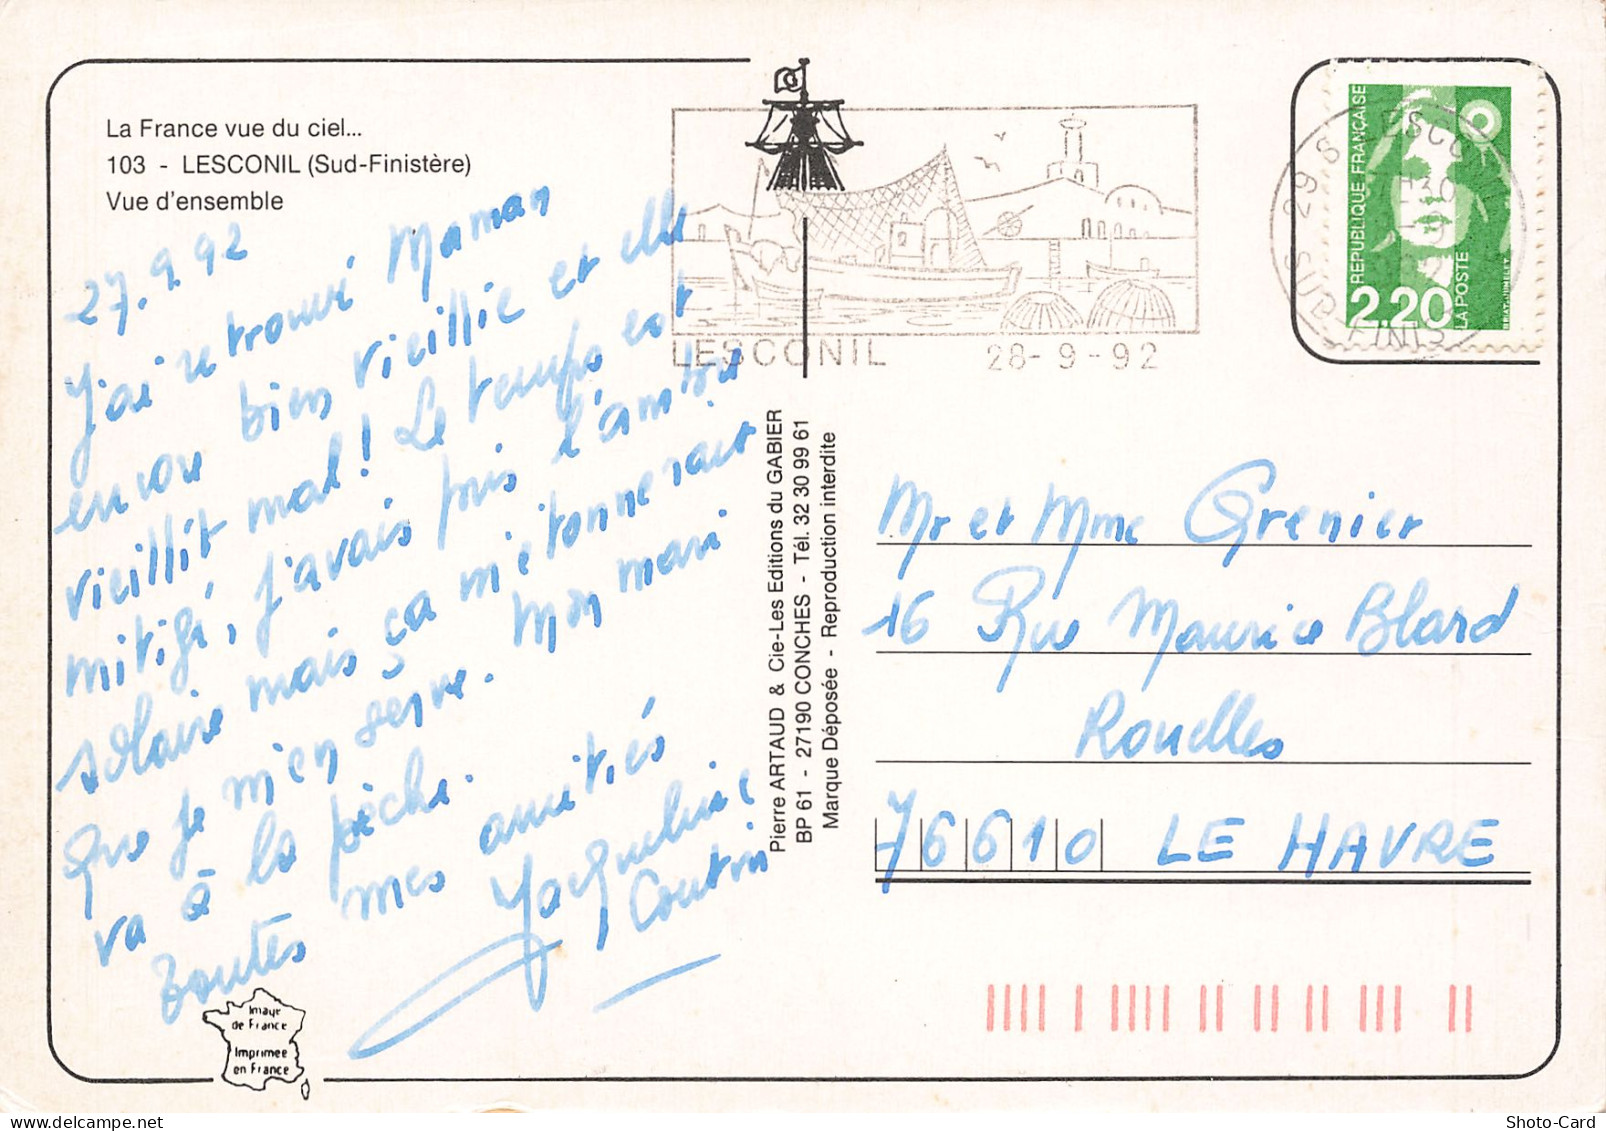 La France vue du ciel...
103 - LESCONIL (Sud-Finistère)
Vue d'ensemble
27.9.92
J'ai retrouvé Maman
encore bien vieillie et elle
vieillit mal! Le temps est
mitigé, j'avais pris l'ambre
solaire mais ça m'étonnerait
que je m'en serve. Mon mari
va à la pêche.
Toutes mes amitiés
Jacqueline
Coutin
Image
de France
Imprimée
en France
Pierre ARTAUD & Cie-Les Editions du GABIER
BP 61 - 27190 CONCHES - Tél. 32 30 99 61
Marque Déposée - Reproduction interdite
LESCONIL 28-9-92
REPUBLIQUE FRANÇAISE
2,20
LA POSTE
BRIAT-JUMELET
29 S
FINIS
Mr et Mme Grenier
16 Rue Maurice Blard
Rouelles
76610 LE HAVRE
Shoto-Card